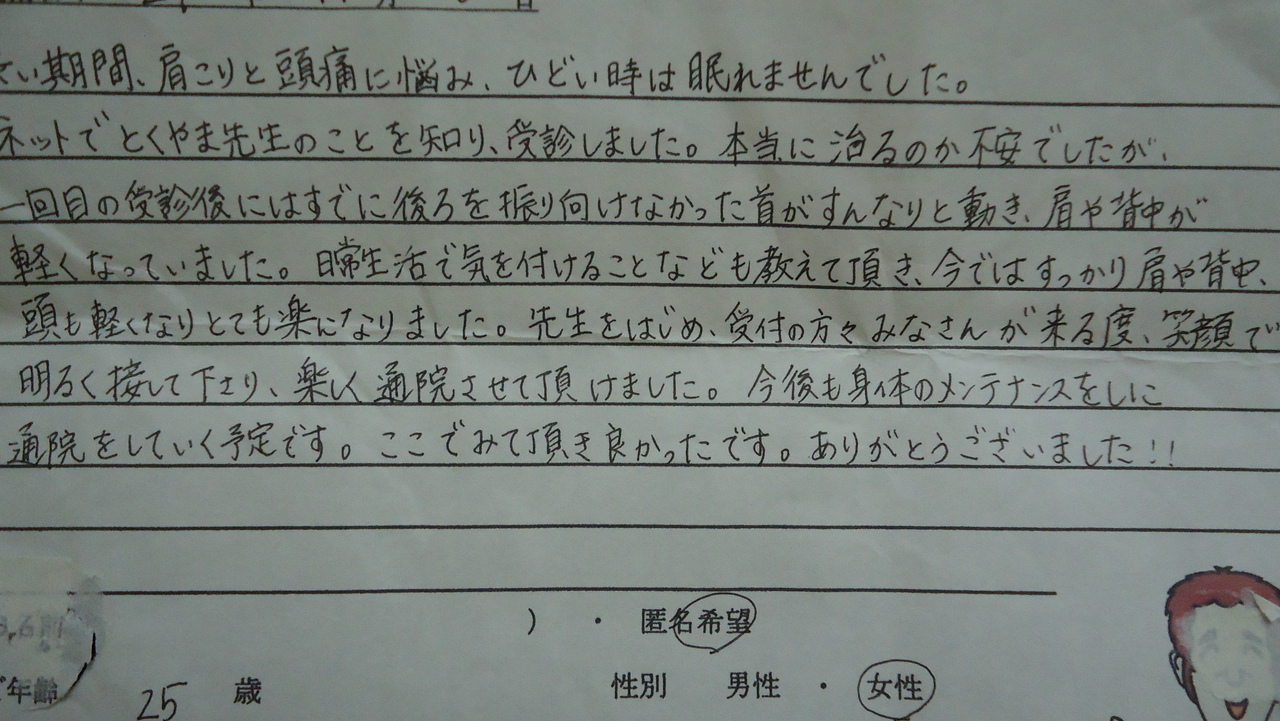 い期間、肩こりと頭痛に悩み、ひどい時は眠れませんでした。
ネットでとくやま先生のことを知り、受診しました。本当に治るのか不安でしたが、
一回目の受診後にはすでに後ろを振り向けなかった首がすんなりと動き、肩や背中が
軽くなっていました。日常生活で気を付けることなども教えて頂き、今ではすっかり肩や背中、
頭も軽くなりとても楽になりました。先生をはじめ、受付の方々みなさんが来る度、笑顔で
明るく接して下さり、楽しく通院させて頂けました。今後も身体のメンテナンスをしに
通院をしていく予定です。ここでみて頂き良かったです。ありがとうございました!!
) ・ 匿名希望
年齢 25 歳 性別 男性 ・ 女性